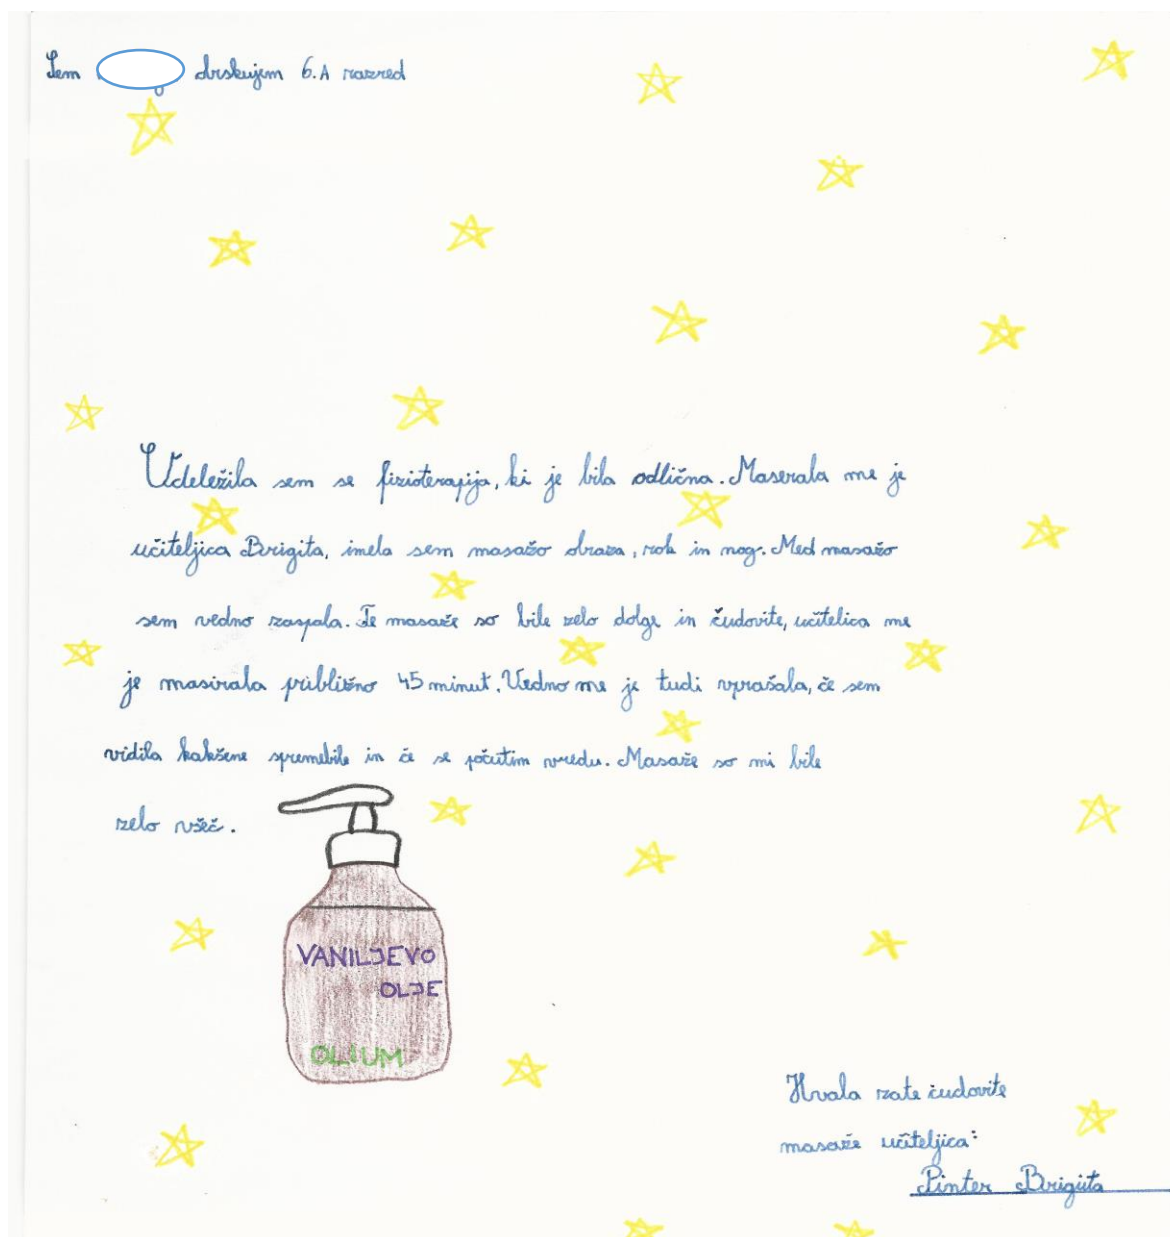 Sem drskujem 6.A razred
Udeležila sem se fizioterapija, ki je bila odlična. Maserala me je
učiteljica Brigita, imela sem masažo obraza, rok in nog. Med masažo
sem vedno zaspala. Te masaže so bile zelo dolge in čudovite, učitelica me
je masirala približno 45 minut. Vedno me je tudi vprašala, če sem
vidila kakšene spremebile in če se počutim vredu. Masaže so mi bile
zelo všeč.
VANILJEVO
OLJE
OLIUM
Hvala zate čudovite
masaže učiteljica:
Pinter Brigita